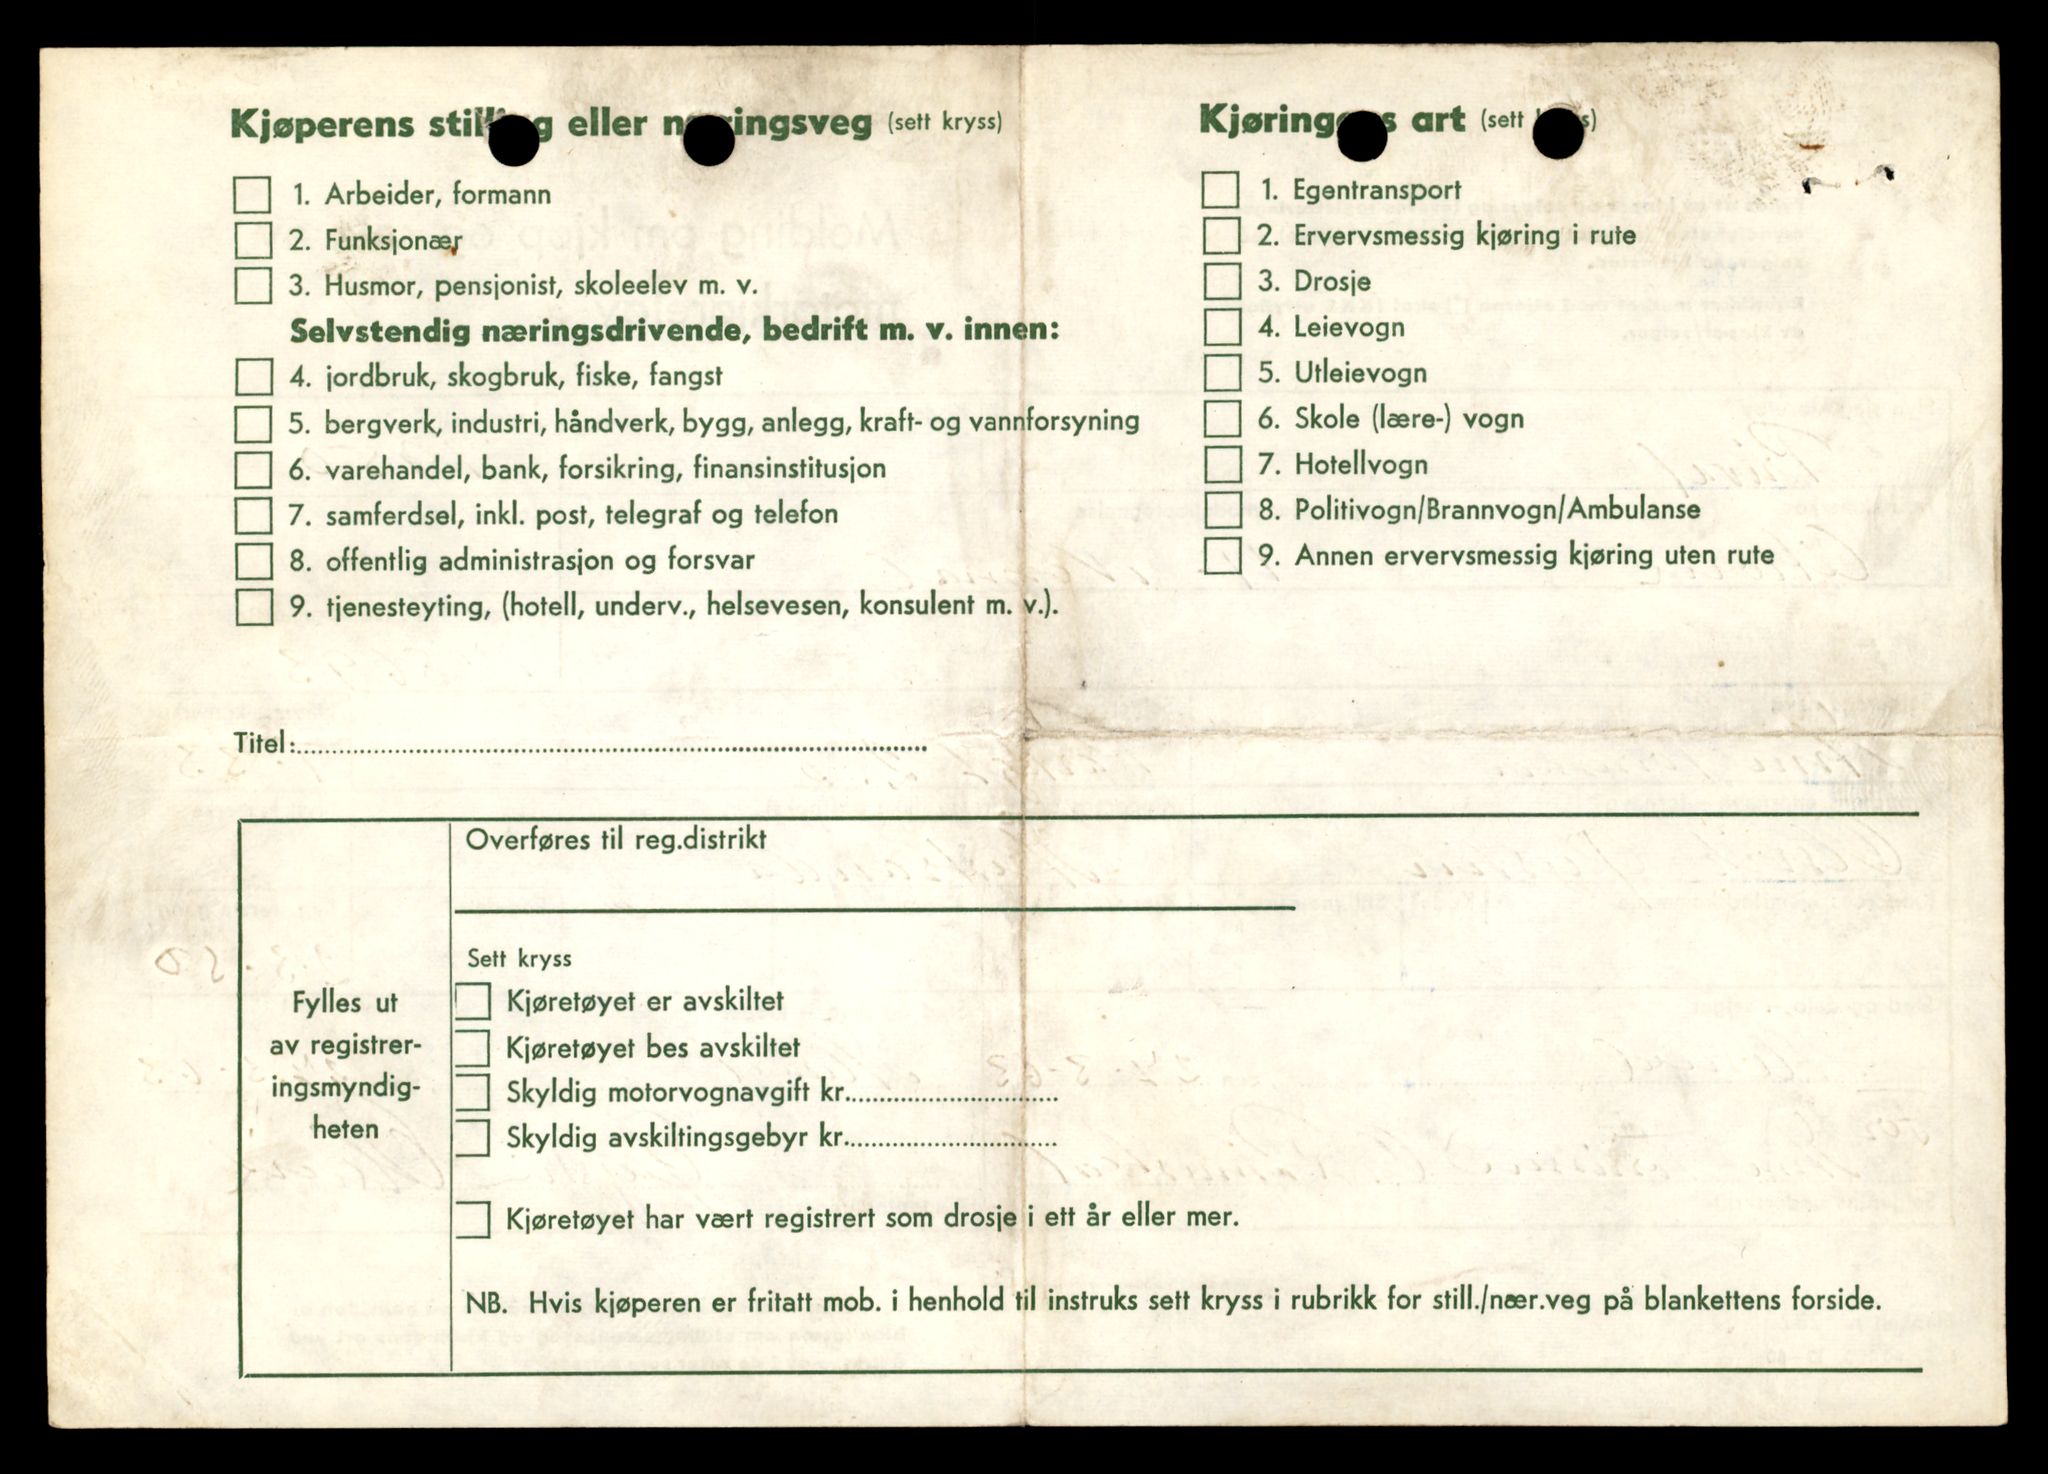 Kjøperens stilling eller næringsveg (sett kryss)
1. Arbeider, formann
2. Funksjonær
3. Husmor, pensjonist, skoleelev m. v.
Selvstendig næringsdrivende, bedrift m. v. innen:
4. jordbruk, skogbruk, fiske, fangst
5. bergverk, industri, håndverk, bygg, anlegg, kraft- og vannforsyning
6. varehandel, bank, forsikring, finansinstitusjon
7. samferdsel, inkl. post, telegraf og telefon
8. offentlig administrasjon og forsvar
9. tjenesteyting, (hotell, underv., helsevesen, konsulent m. v.).
Titel:
Kjøringens art (sett kryss)
1. Egentransport
2. Ervervsmessig kjøring i rute
3. Drosje
4. Leievogn
5. Utleievogn
6. Skole (lære-) vogn
7. Hotellvogn
8. Politivogn/Brannvogn/Ambulanse
9. Annen ervervsmessig kjøring uten rute
Fylles ut
av registrer-
ingsmyndig-
heten
Overføres til reg.distrikt
Sett kryss
Kjøretøyet er avskiltet
Kjøretøyet bes avskiltet
Skyldig motorvognavgift kr.
Skyldig avskiltingsgebyr kr.
Kjøretøyet har vært registrert som drosje i ett år eller mer.
NB. Hvis kjøperen er fritatt mob. i henhold til instruks sett kryss i rubrikk for still./nær.veg på blankettens forside.